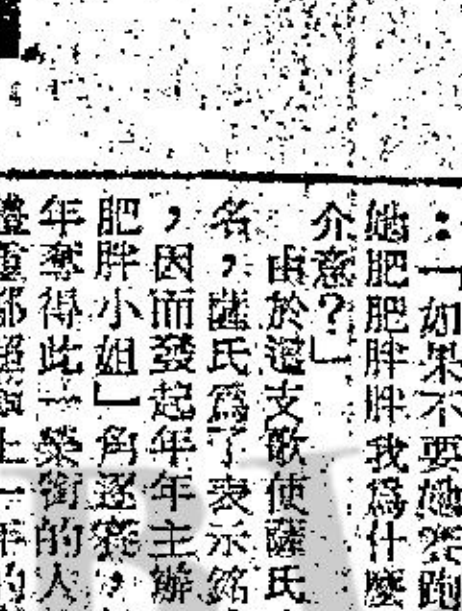 ：「如果不要她賽跑
她肥肥胖胖我爲什麼
介意？」
由於這支歌使薩氏
名，薩氏爲了表示銘
，因而發起年年主辦
肥胖小姐」角逐賽，
年奪得此一榮銜的人
體重都超額上一年的